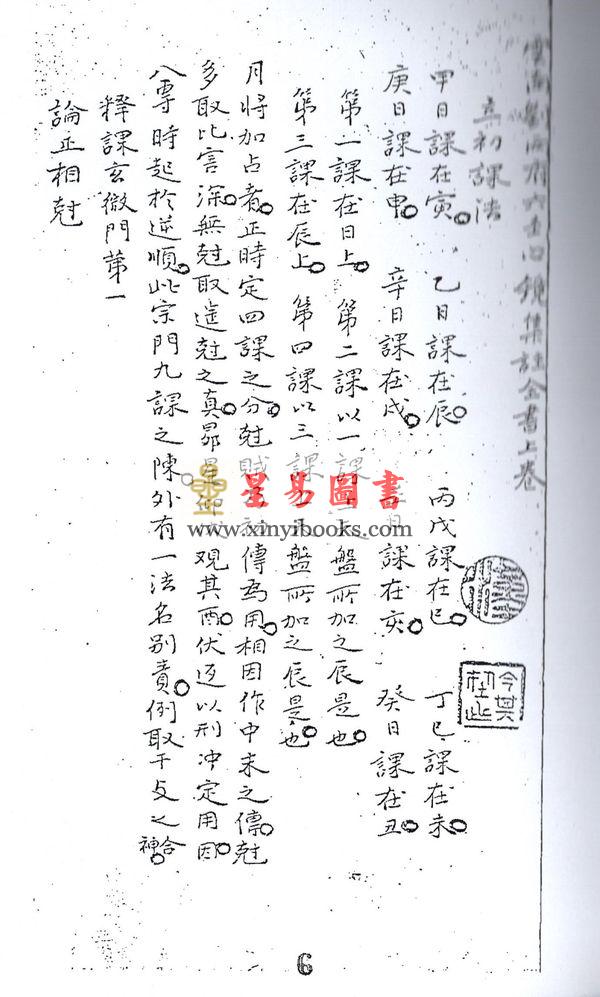 六壬口鏡集註全書上卷
立初課法
甲日課在寅。 乙日課在辰。 丙戊課在巳。 丁己課在未。
庚日課在申。 辛日課在戌。 壬日課在亥。 癸日課在丑。
第一課在日上。 第二課以一課上盤所加之辰是也。
第三課在辰上。 第四課以三課上盤所加之辰是也。
月將加占者。正時定四課之分。尅賊三初傳為用。相因作中末之傳。尅
多取比害深。無尅取遥尅之真。昴星仰 观其酉。伏返以刑冲定用。因
八專時起於逆順。此宗門九課之陳外有一法名别責。例取干支之合神。
釋課玄微門第一
論正相尅
星易圖書
www.xinyibooks.com
6